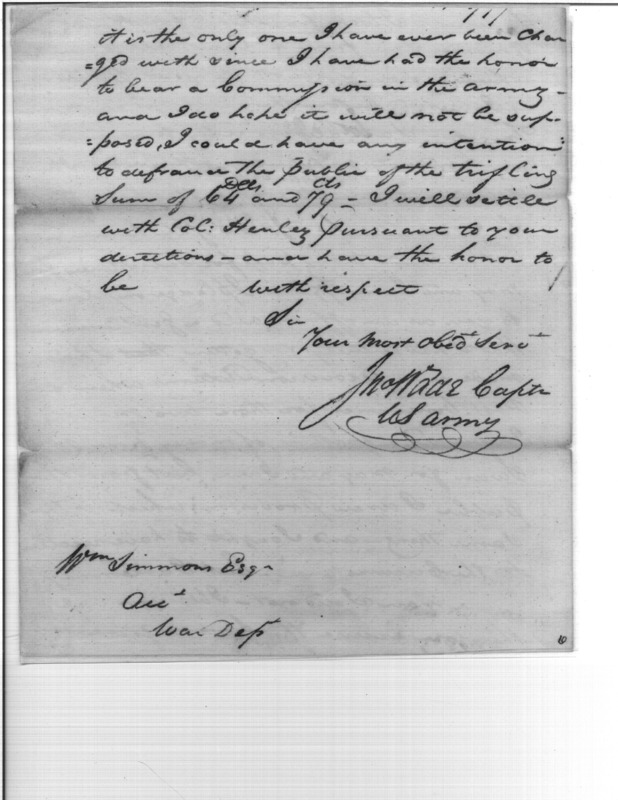 it is the only one I have ever been Char
=ged with since I have had the honor
to bear a Commission in the army -
and I do hope it will not be sup-
=posed, I could have any intention
to defraud the public of the trifling
Sum of 64 Dlls and 79 Cts - I will settle
with Col: Henley pursuant to your
directions - and have the honor to
be with respect
Sir
Your most Obedt Servt
Jno Wade Captn
US army
Wm Simmons Esqr
Acct
War Dept